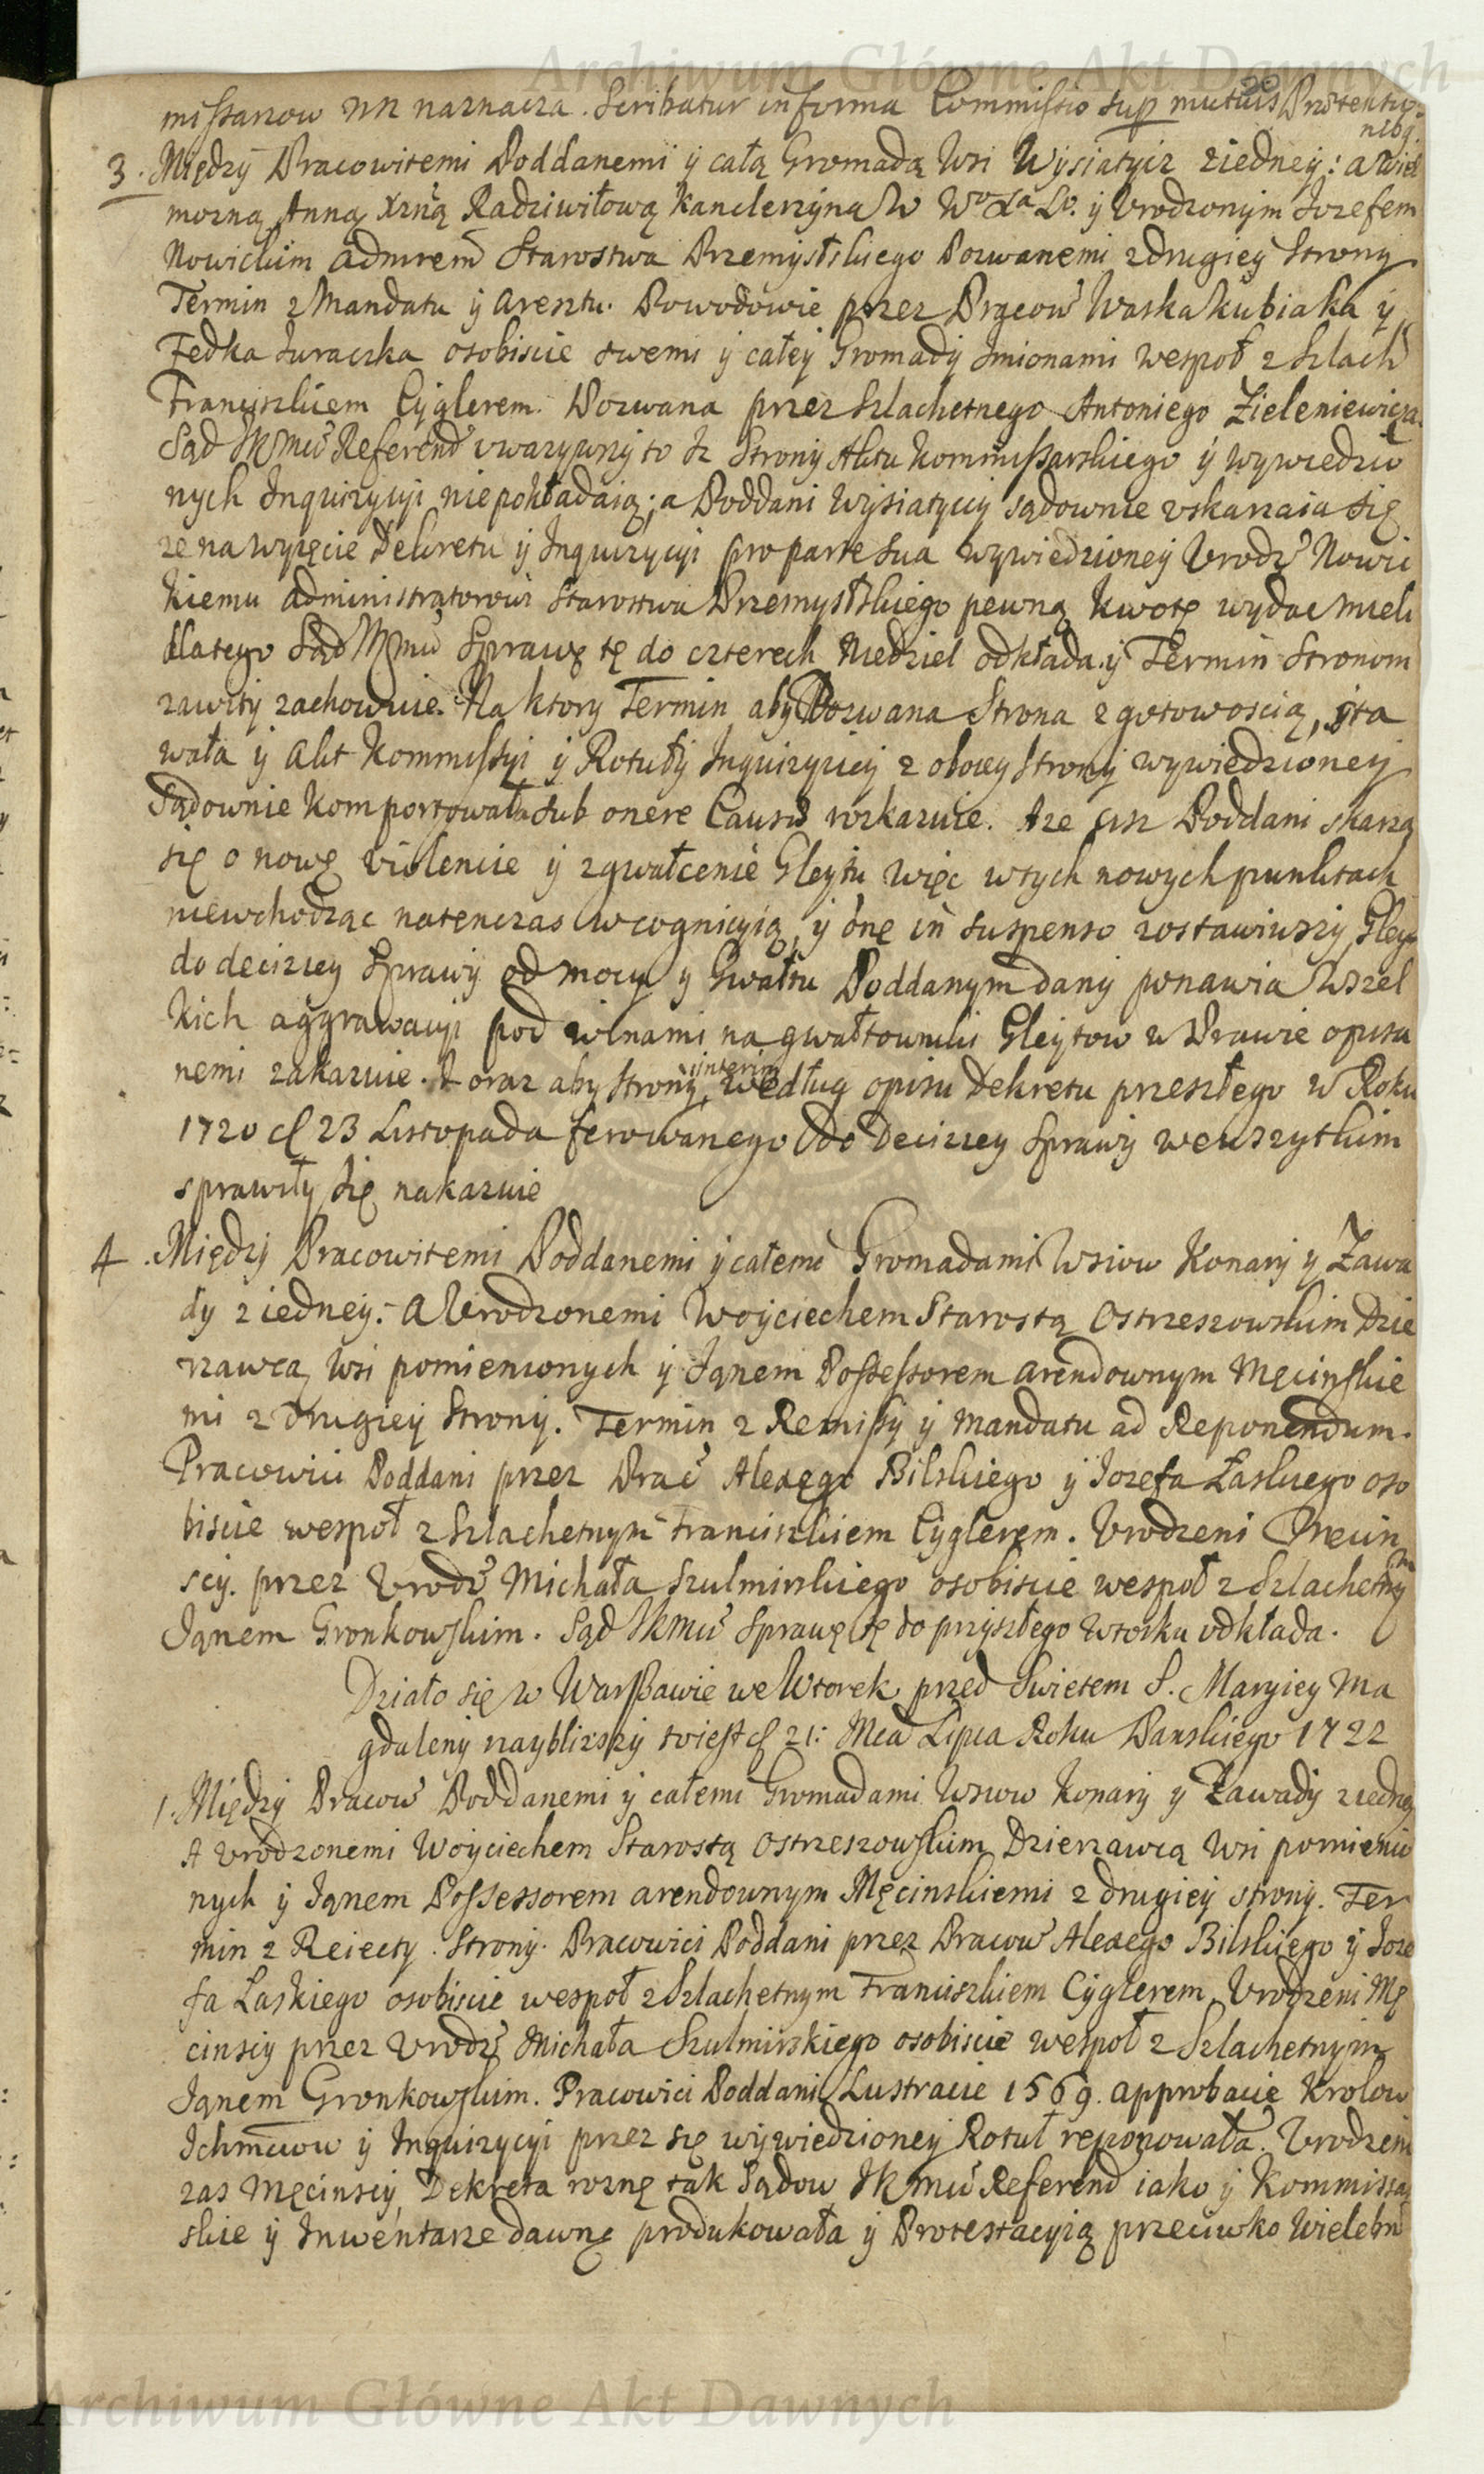 Archiwum Główne Akt Dawnych
missarzow NN naznacza. Scribatur in forma Commissio sup mutuis Prætensio
nibq.
3. Między Pracowitemi Poddanemi y całą Gromadą Wsi Wysiatycz ziedney: a Wiel
mozną Anną Xzną Radziwiłową Kanclerzyną W Wo Xa Lo. y Vrodzonym Jozefem
Nowickim Admrem Starostwa Przemysłskiego Pozwanemi z drugiey Strony
Termin z Mandatu y Aresztu. Powodowie przez Pracow Waska Kubiaka y
Fedka Suraczka osobiscie swemi y całey Gromady Jmionami wespoł z Szlach
Franciszkiem Cyglerem. Pozwana przez Szlachetnego Antoniego Zieleniewicza.
Sąd JKMci Referend vwazywszy to Jz Strony Aktu Kommissarskiego y wywiedzio
nych Inquizycyi niepokładaią; a Poddani Wysiatyccy sądownie vskarzaia się
ze na wyięcie Dekretu y Inquizycyi pro parte sua wywiedzioney Vrodz Nowic
kiemu Administratorowi Starostwa Przemysłskiego pewną kwotę wydac mieli
dlatego Sąd JKMci Sprawę tę do czterech Niedziel odkłada y Termin Stronom
zawity zachowuie. Na ktory Termin aby Pozwana Strona z gotowoscią, sta
wała y Akt Kommissyi y Rotuły Inquizycyey z obocy Strony wywiedzioney
Sądownie komportowała sub onere Causæ rozkazuie. A ze cisz Poddani skarzą
się o nowe violencie y zgwałcenie Gleytu więc w tych nowych punktach
niewchodząc natenczas w cognicyią, y one in suspenso zostawiwszy, Gleyt
do decizyey Sprawy od mocy y Gwałtu Poddanym dany ponawia Wszel
kich aggrawacyi pod winami na gwałtowniki Gleytow w Prawie opisa
nemi zakazuie. I oraz aby Strony, interim według opisu Dekretu przeszłego w Roku
1720 d 23 Listopada ferowanego do Decizyey Sprawy we wszytkim
sprawiły się nakazuie
4. Między Pracowitemi Poddanemi y całemi Gromadami Wsiow Konary y Zawa
dy z iedney: A Vrodzonemi Woyciechem Starostą Ostrzeszowskim Dzie
rzawcą Wsi pomienionych y Janem Possessorem arendownym Męcinskie
mi z drugiey Strony. Termin z Remissy y Mandatu ad Reponendum.
Pracowici Poddani przez Prac Alexego Bilskiego y Jozefa Łaskiego oso
biscie wespoł z Szlachetnym Franciszkiem Cyglerem. Vrodzeni Mecin
scy. przez Vrodz Michała Szulmirskiego osobiscie wespoł z Szlachetny m
Janem Gronkowskim. Sąd JKMci Sprawę tę do przyszłego Wtorku odkłada.
Działo się w Warszawie we Wtorek przed Swietem S. Maryiey Ma
gdaleny nayblizszy to iest d 21: Mca Lipca Roku Panskiego 1722
1. Między Pracow Poddanemi y całemi Gromadami Wsiow Konary y Zawady z iedney
A Vrodzonemi Woyciechem Starostą Ostrzeszowskim Dzierzawcą Wsi pomienio
nych y Janem Possessorem arendownym Męcinskiemi z drugiey strony. Ter
min z Reiecty. Strony. Pracowici Poddani przez Pracow Alexego Bilskiego y Joze
fa Łaskiego osobiscie wespoł z Szlachetnym Franciszkiem Cyglerem. Vrodzeni Mę
cinscy przez Vrodz Michała Szulmirskiego osobiscie wespoł z Szlachetnym
Janem Gronkowskim. Pracowici Poddani Lustracie 1569. approbacie Krolow
Ichmciow y Inquizycyi przez się wywiedzioney Rotuł reponowała. Vrodzeni
zas Męcinscy Dekreta rozne tak Sądow JKMci Referend iako y Kommissar
skie y Inwentarze dawne produkowała y Protestacyią przeciwko Wielebn
Archiwum Główne Akt Dawnych